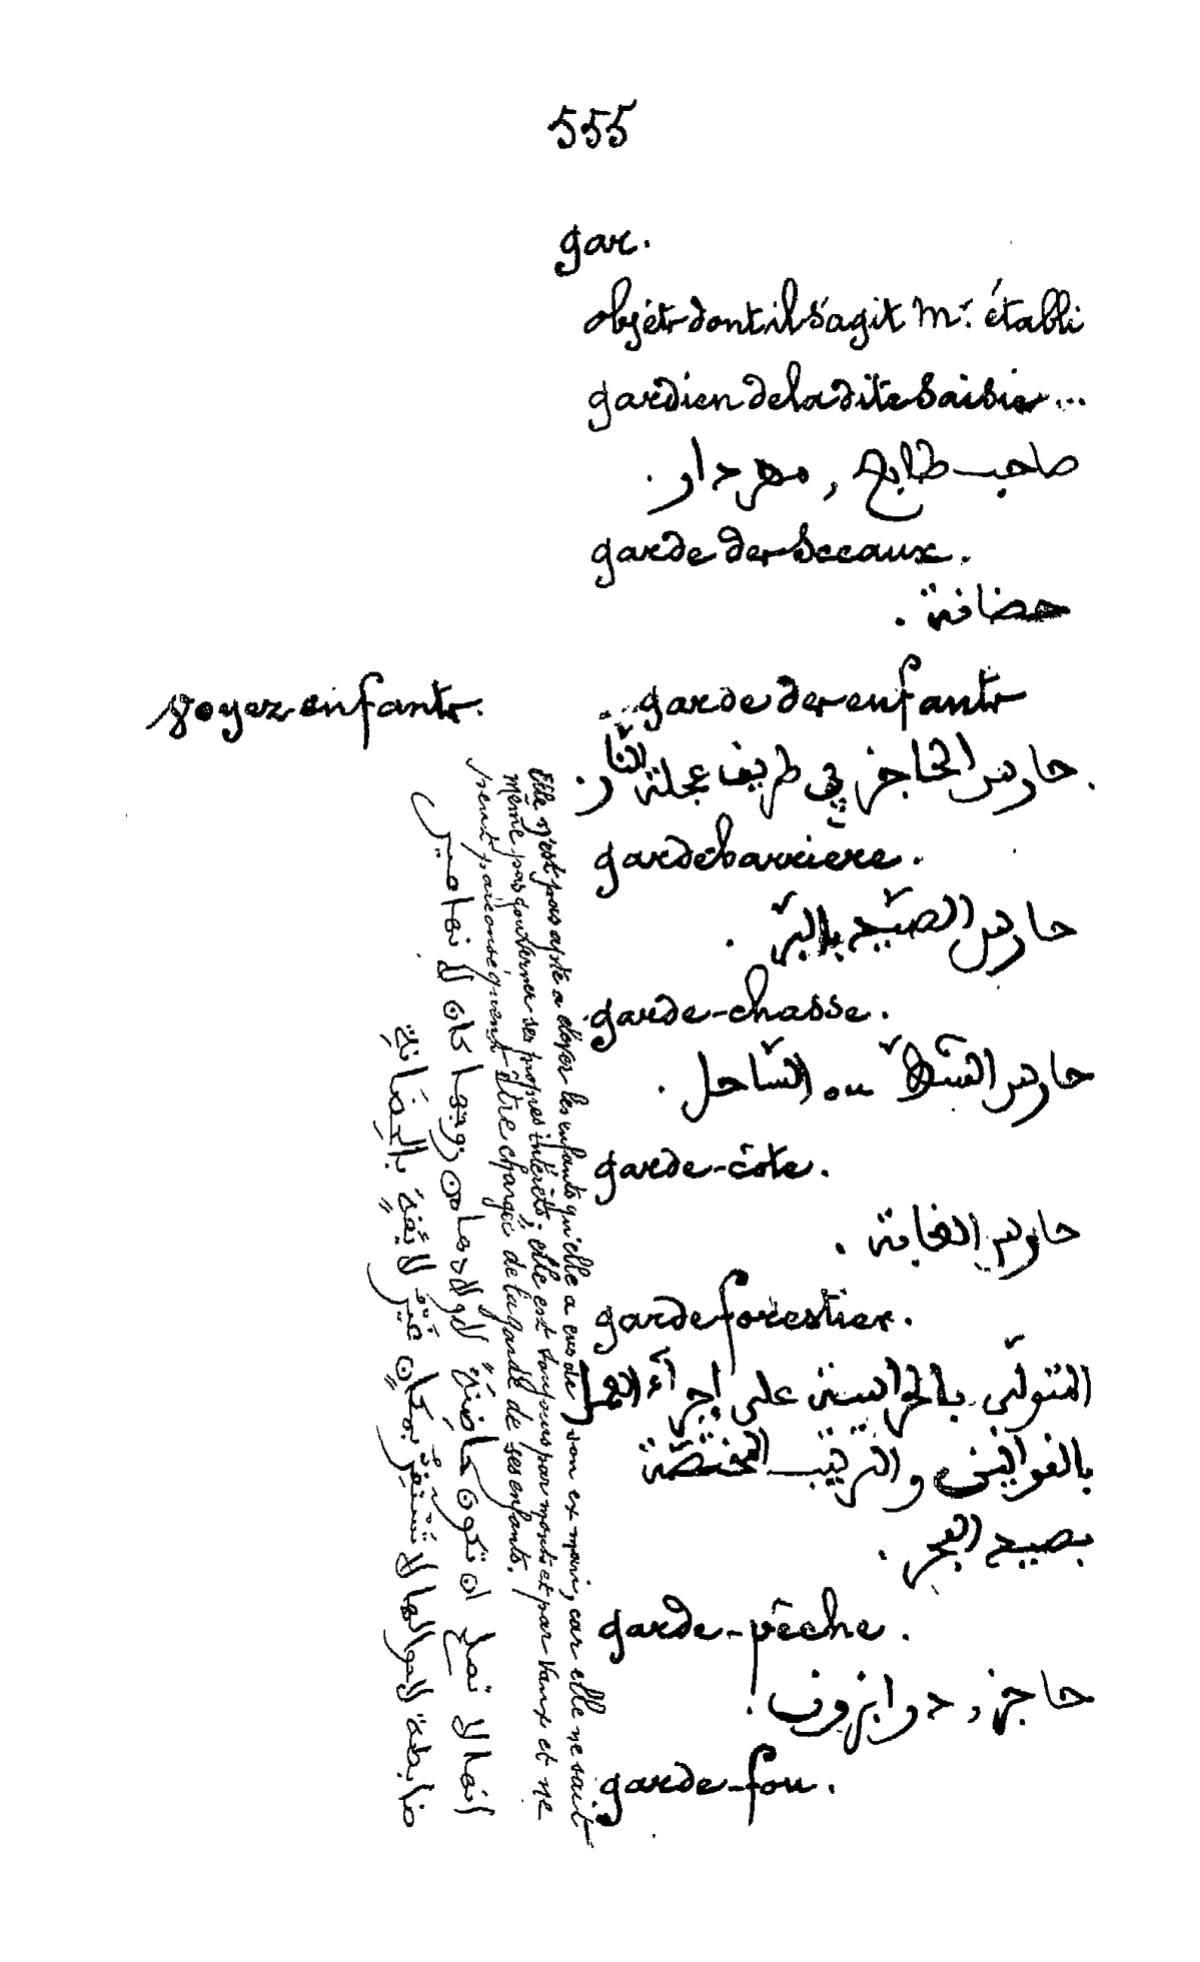 555
gar.
objet dont il s'agit Mr. établi
gardien de la dite saisie...
صاحب طابع , مهردار .
garde des sceaux.
حضانة .
garde des enfants
voyez enfants.
حارس الحاجز في طريق عجلة النّار .
garde barrière.
حارس الصّيد بالبرّ .
garde-chasse.
حارس الشطّ ou السّاحل .
garde-côte.
حارس الغابة .
garde forestier.
المتولّى بالحراسة على إجرآء العمل
بالقوانين والترتيب المختصّة
بصيد البحر .
garde-pêche.
حاجز , درابزون .
garde-fou.
Elle n'est pas apte à élever les enfants qu'elle a eus de son ex mari, car elle ne sait
même pas gouverner ses propres intérêts; elle est toujours par monts et par vaux et ne
peut par conséquent être chargée de la garde de ses enfants.
انها لا تصلح ان تكون حاضنة لاولادها من زوجها كان لانها ليس
ضابطة لاحوالها لا تستقرّ بمكان غير لائقة بالحضانة